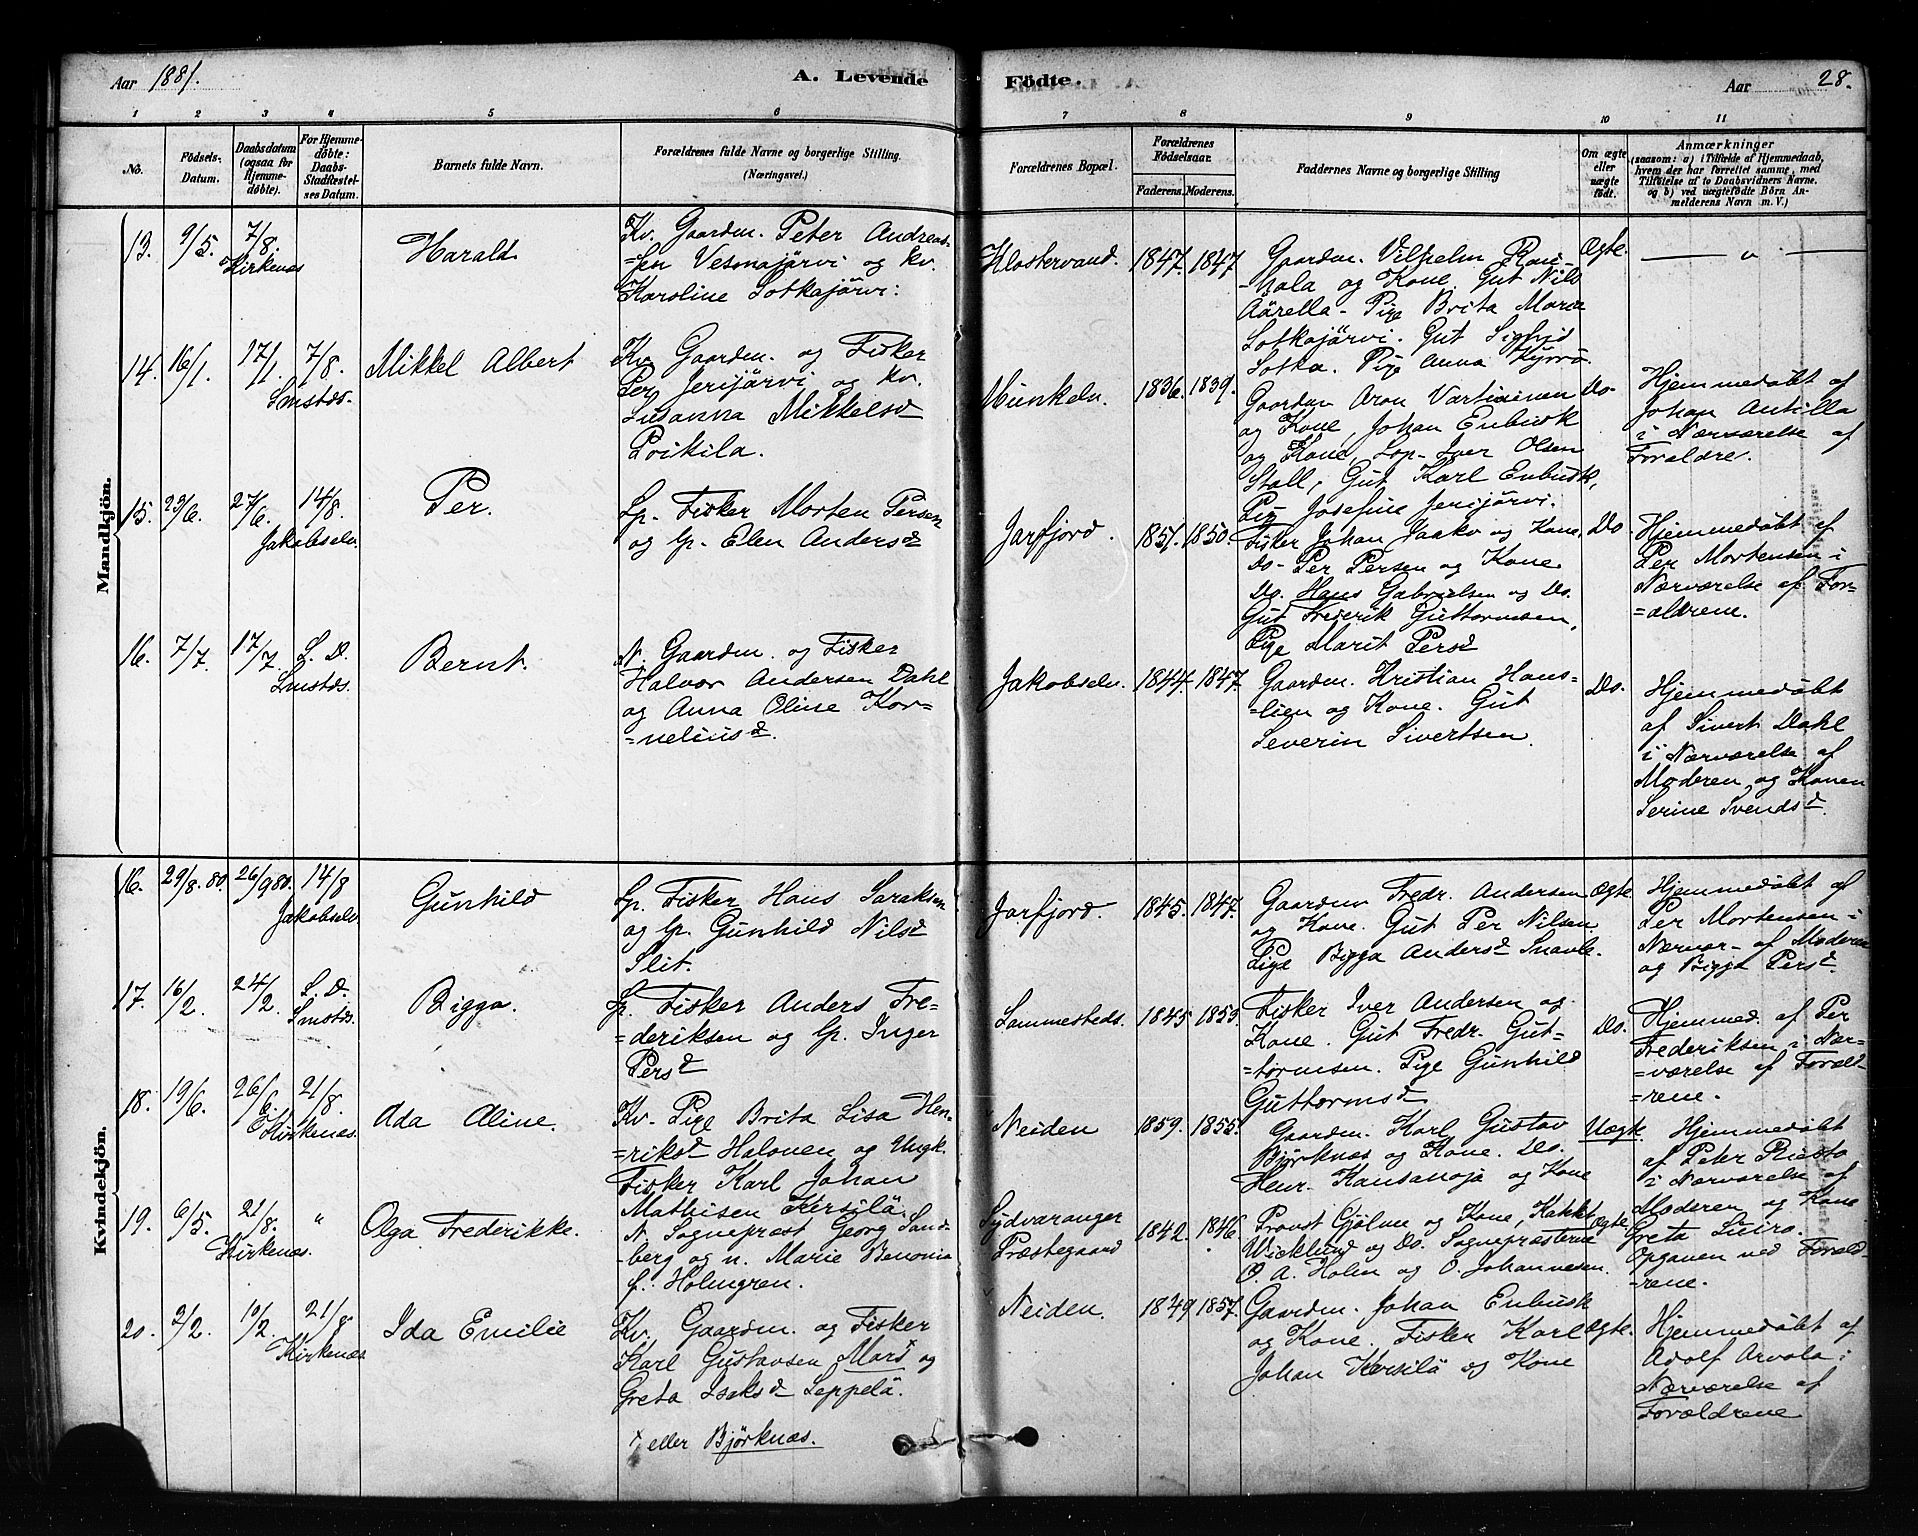 Aar 1881.
A. Levende
Födte.
Aar
28.
1 2 3 4 5 6
7 8 9 10 11
No.
Födsels-
Datum.
Daabsdatum
(ogsaa for
Hjemme-
døbte).
For Hjemme-
døbte:
Daabs-
Stadfæstel-
ses Datum.
Barnets fulde Navn.
Forældrenes fulde Navne og borgerlige Stilling.
(Næringsvei.)
Forældrenes Bopæl.
Forældrenes
Födselsaar.
Faderens. Moderens.
Faddernes Navne og borgerlige Stilling
Om ægte
eller
uægte
födt.
Anmærkninger
(saasom: a) i Tilfælde af Hjemmedaab,
hvem der har forrettet samme, med
Tilföielse af to Daabsvidners Navne,
og b) ved uægtefödte Börn An-
melderens Navn m. V.)
Mandkjön.
13. 9/5. 7/8.
Kirkenæs
Harald
Kv. Gaardm. Peter Andreas-
=sen Vesmajärvi og kv.
Karoline Sotkajärvi:
Klostervand. 1847. 1847
Gaardm. Vilhelm Rou-
-hala og Kone. Gut Nils
Äärella - Pige Brita Maria
Sotkajärvi. Gut Sigfrid
Sotka. Pige Anna Kyrö.
Ægte.
— " —
14. 16/1. 17/1. 7/8.
Smstds.
Mikkel Albert
Kv. Gaardm. og Fisker
Per Jerijärvi og kv.
Susanna Mikkelsd
Poikila.
Munkeln. 1836. 1839.
Gaardm Aron Vartiainen
og Kone, Johan Enbusk
og Kone, Lop- Iver Olsen
Stall, Gut Karl Enbusk,
Pig Josefine Jerijärvi.
Do.
Hjemmedøbt af
Johan Antilla
i Nærværelse af
Forældre.
15. 23/6. 27/6. 14/8.
Jakobselv.
Per.
Lp. Fisker Morten Persen
og lp. Elen Andersd
Jarfjord. 1851. 1850.
Fisker Johan Jaako og Kone,
Do- Per Persen og Kone
Do. Hans Gabrielsen og Do.
Gut Frederik Guttormsen,
Pige Marit Persd
Do.
Hjemmedøbt af
Per Mortensen i
Nærværelse af For-
=ældrene.
16. 7/7. 17/7. L. D.
Smstds.
Bernt.
N. Gaardm. og Fisker
Halvor Andersen Dahl
og Anna Oline Kor-
=neliusd.
Jakobselv. 1844. 1847.
Gaardm. Kristian Hans-
=lien og Kone. Gut
Severin Sivertsen.
Do.
Hjemmedøbt
af Sivert Dahl
i Nærværelse af
Moderen og Konen
Serine Svendsd
Kvindekjön.
16. 29/8. 80. 26/9 80. 14/8
Jakobselv
Gunhild
Lp. Fisker Hans Saraksen
og lp. Gunhild Nilsd
Slit.
Jarfjord. 1845. 1847.
Gaardm Fredr. Andersen
og Kone. Gut Per Nilsen
Pige Bigga Andersd Snavle.
Ægte
Hjemmedøbt af
Per Mortensen i
Nærvær- af Moderen
og Bigga Persd.
17. 16/2. 24/2. L. D.
Smstds.
Bigga.
Lp. Fisker Anders Fre-
=deriksen og lp. Inger
Persd
Sammesteds. 1845 1853.
Fisker Iver Andersen og
Kone. Gut Fredr. Gut-
=tormsen. Pige Gunhild
Guttormsd
Do.
Hjemmed. af Per
Frederiksen i Nær-
=værelse af Foræld-
=rene.
18. 19/6. 26/6. 21/8.
Kirkenæs.
Ada Aline.
Kv. Pige Brita Lisa Hen-
=riksd Halonen og Ungk.
Fisker Karl Johan
Mathisen Kersilä.
Neiden 1859. 1855.
Gaardm. Karl Gustav
Bjørknæs og Kone. Do.
Henr. Kansanoja og Kone
Uægte
Hjemmedøbt
af Peter Riesto
i Nærværelse af
Moderen og Kone
Greta Suiro.
19. 6/5. 21/8. "
Kirkenæs.
Olga Frederikke.
N. Sogneprest Georg Sand-
-berg og n. Marie Benonia
f. Holmgren.
Sydvaranger
Præstegaard 1842. 1846.
Provst Gjølme og Kone,
Wicklund og Do. Sognepræsterne
O. A. Holm og O. Johannesen.
Ægte
Opgaven ved Foræld-
=rene.
20. 2/2. 10/2. 21/8.
Kirkenæs
Ida Emilie
Kv. Gaardm. og Fisker
Karl Gustavsen Mard x og
Greta Isaksd Seppelä.
x, eller Bjørknæs.
Neiden. 1849 1857.
Gaardm. Johan Enbusk
og Kone. Fisker Karl
Johan Kersilö og Kone
Ægte.
Hjemmedøbt af
Adolf Arvola i
Nærværelse af
Forældrene